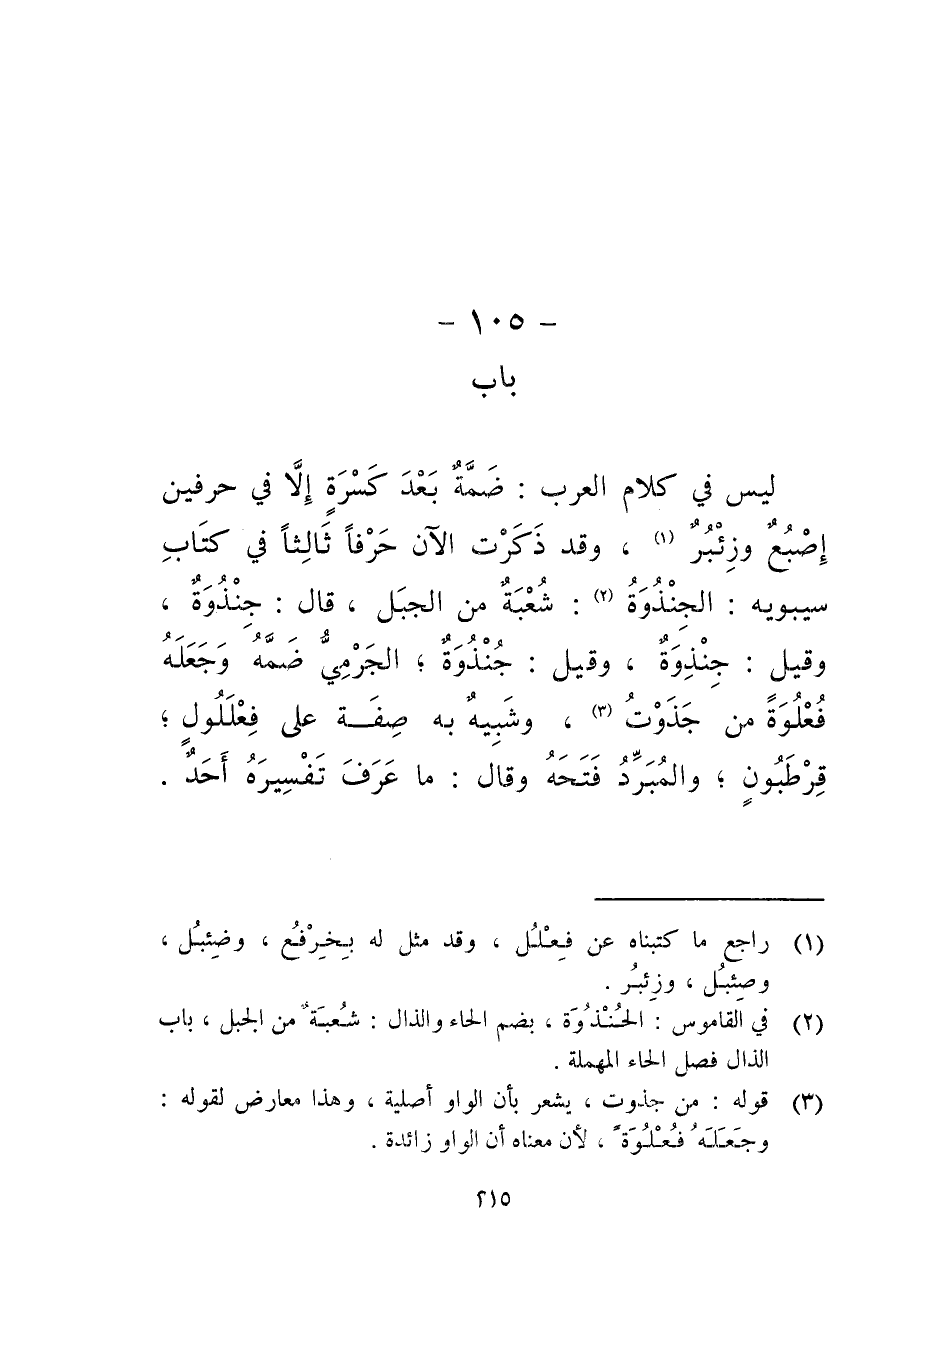 - ١٠٥ -
باب
ليس في كلام العرب : ضَمَّةٌ بَعْدَ كَسْرَةٍ إلَّا في حرفين
إصْبُعٌ وزِئْبُرٌ (١) ، وقد ذَكَرْت الآن حَرْفاً ثَالِثاً في كتَابِ
سيبويه : الجِنْذُوَةُ (٢) : شُعْبَةٌ من الجبَل ، قال : جِنْذُوَةٌ ،
وقيل : جِنْذِوَةٌ ، وقيل : جُنْذُوَةٌ ؛ الجَرْمِيُّ ضَمَّهُ وَجَعَلَهُ
فُعْلُوَةً من جَذَوْتُ (٣) ، وشَبِيهٌ به صِفَة على فِعْلَلُولٍ ؛
قِرْطَبُونٍ ؛ والمُبَرِّدُ فَتَحَهُ وقال : ما عَرَفَ تَفْسِيرَهُ أَحَدٌ .
(١) راجع ما كتبناه عن فِعْلُل ، وقد مثل له بِخِرْفُع ، وضِئبُل ،
وصِئبُل ، وزِئبُر .
(٢) في القاموس : الحُنْذُوَة ، بضم الحاء والذال : شُعبَةٌ من الجبل ، باب
الذال فصل الحاء المهملة .
(٣) قوله : من جذوت ، يشعر بأن الواو أصلية ، وهذا معارض لقوله :
وجَعَلَهُ فُعْلُوَةً ، لأن معناه أن الواو زائدة .
٢١٥